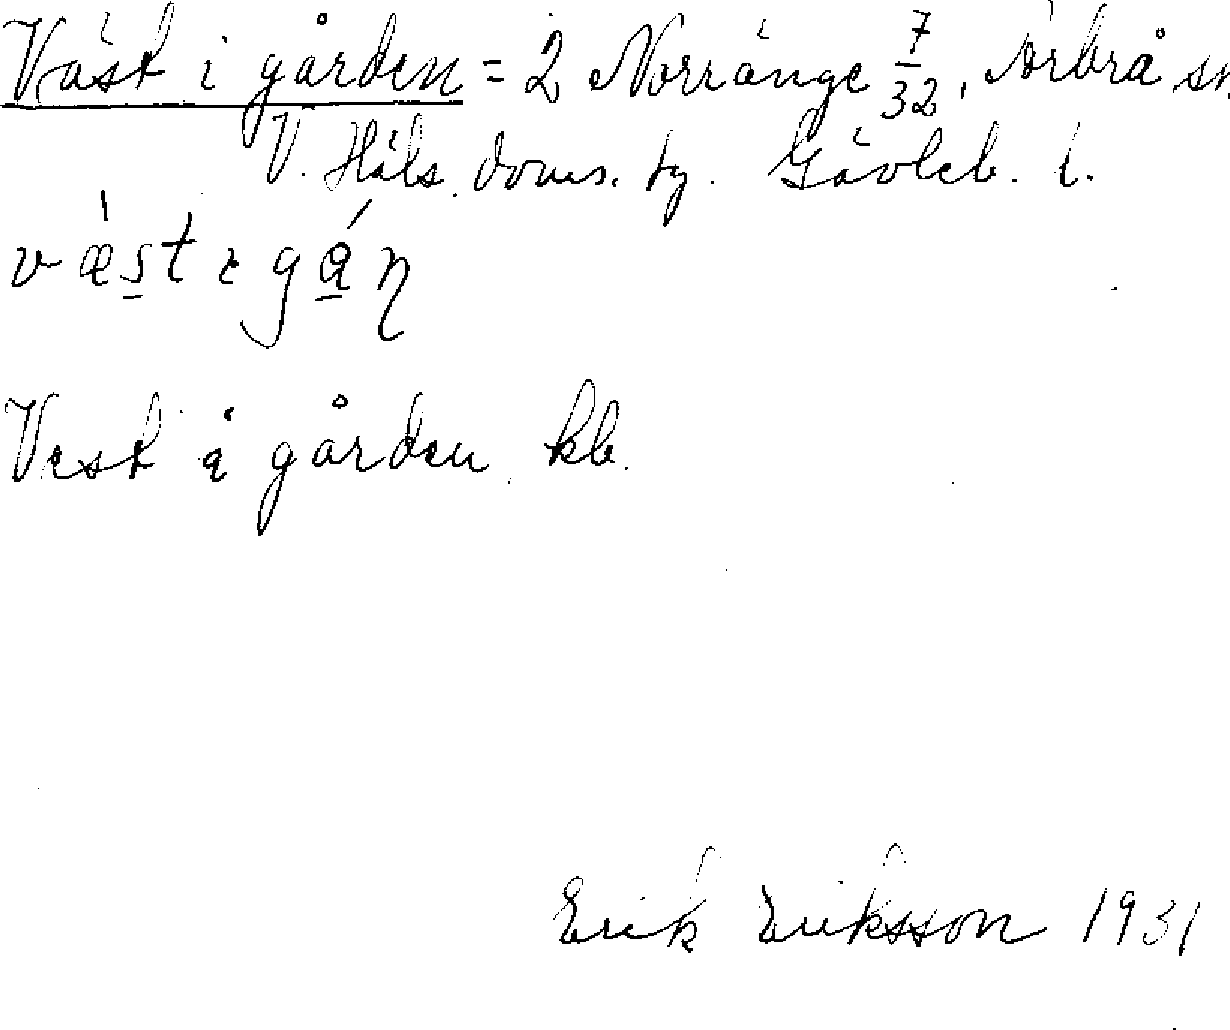 Väst i gården = 2 Norränge 7/32, Arbrå sn.
V. Häls. doms. tg. Gävleb. l.
væ̀stɩgǻn
Vest å gården kb.
Erik Eriksson 1931